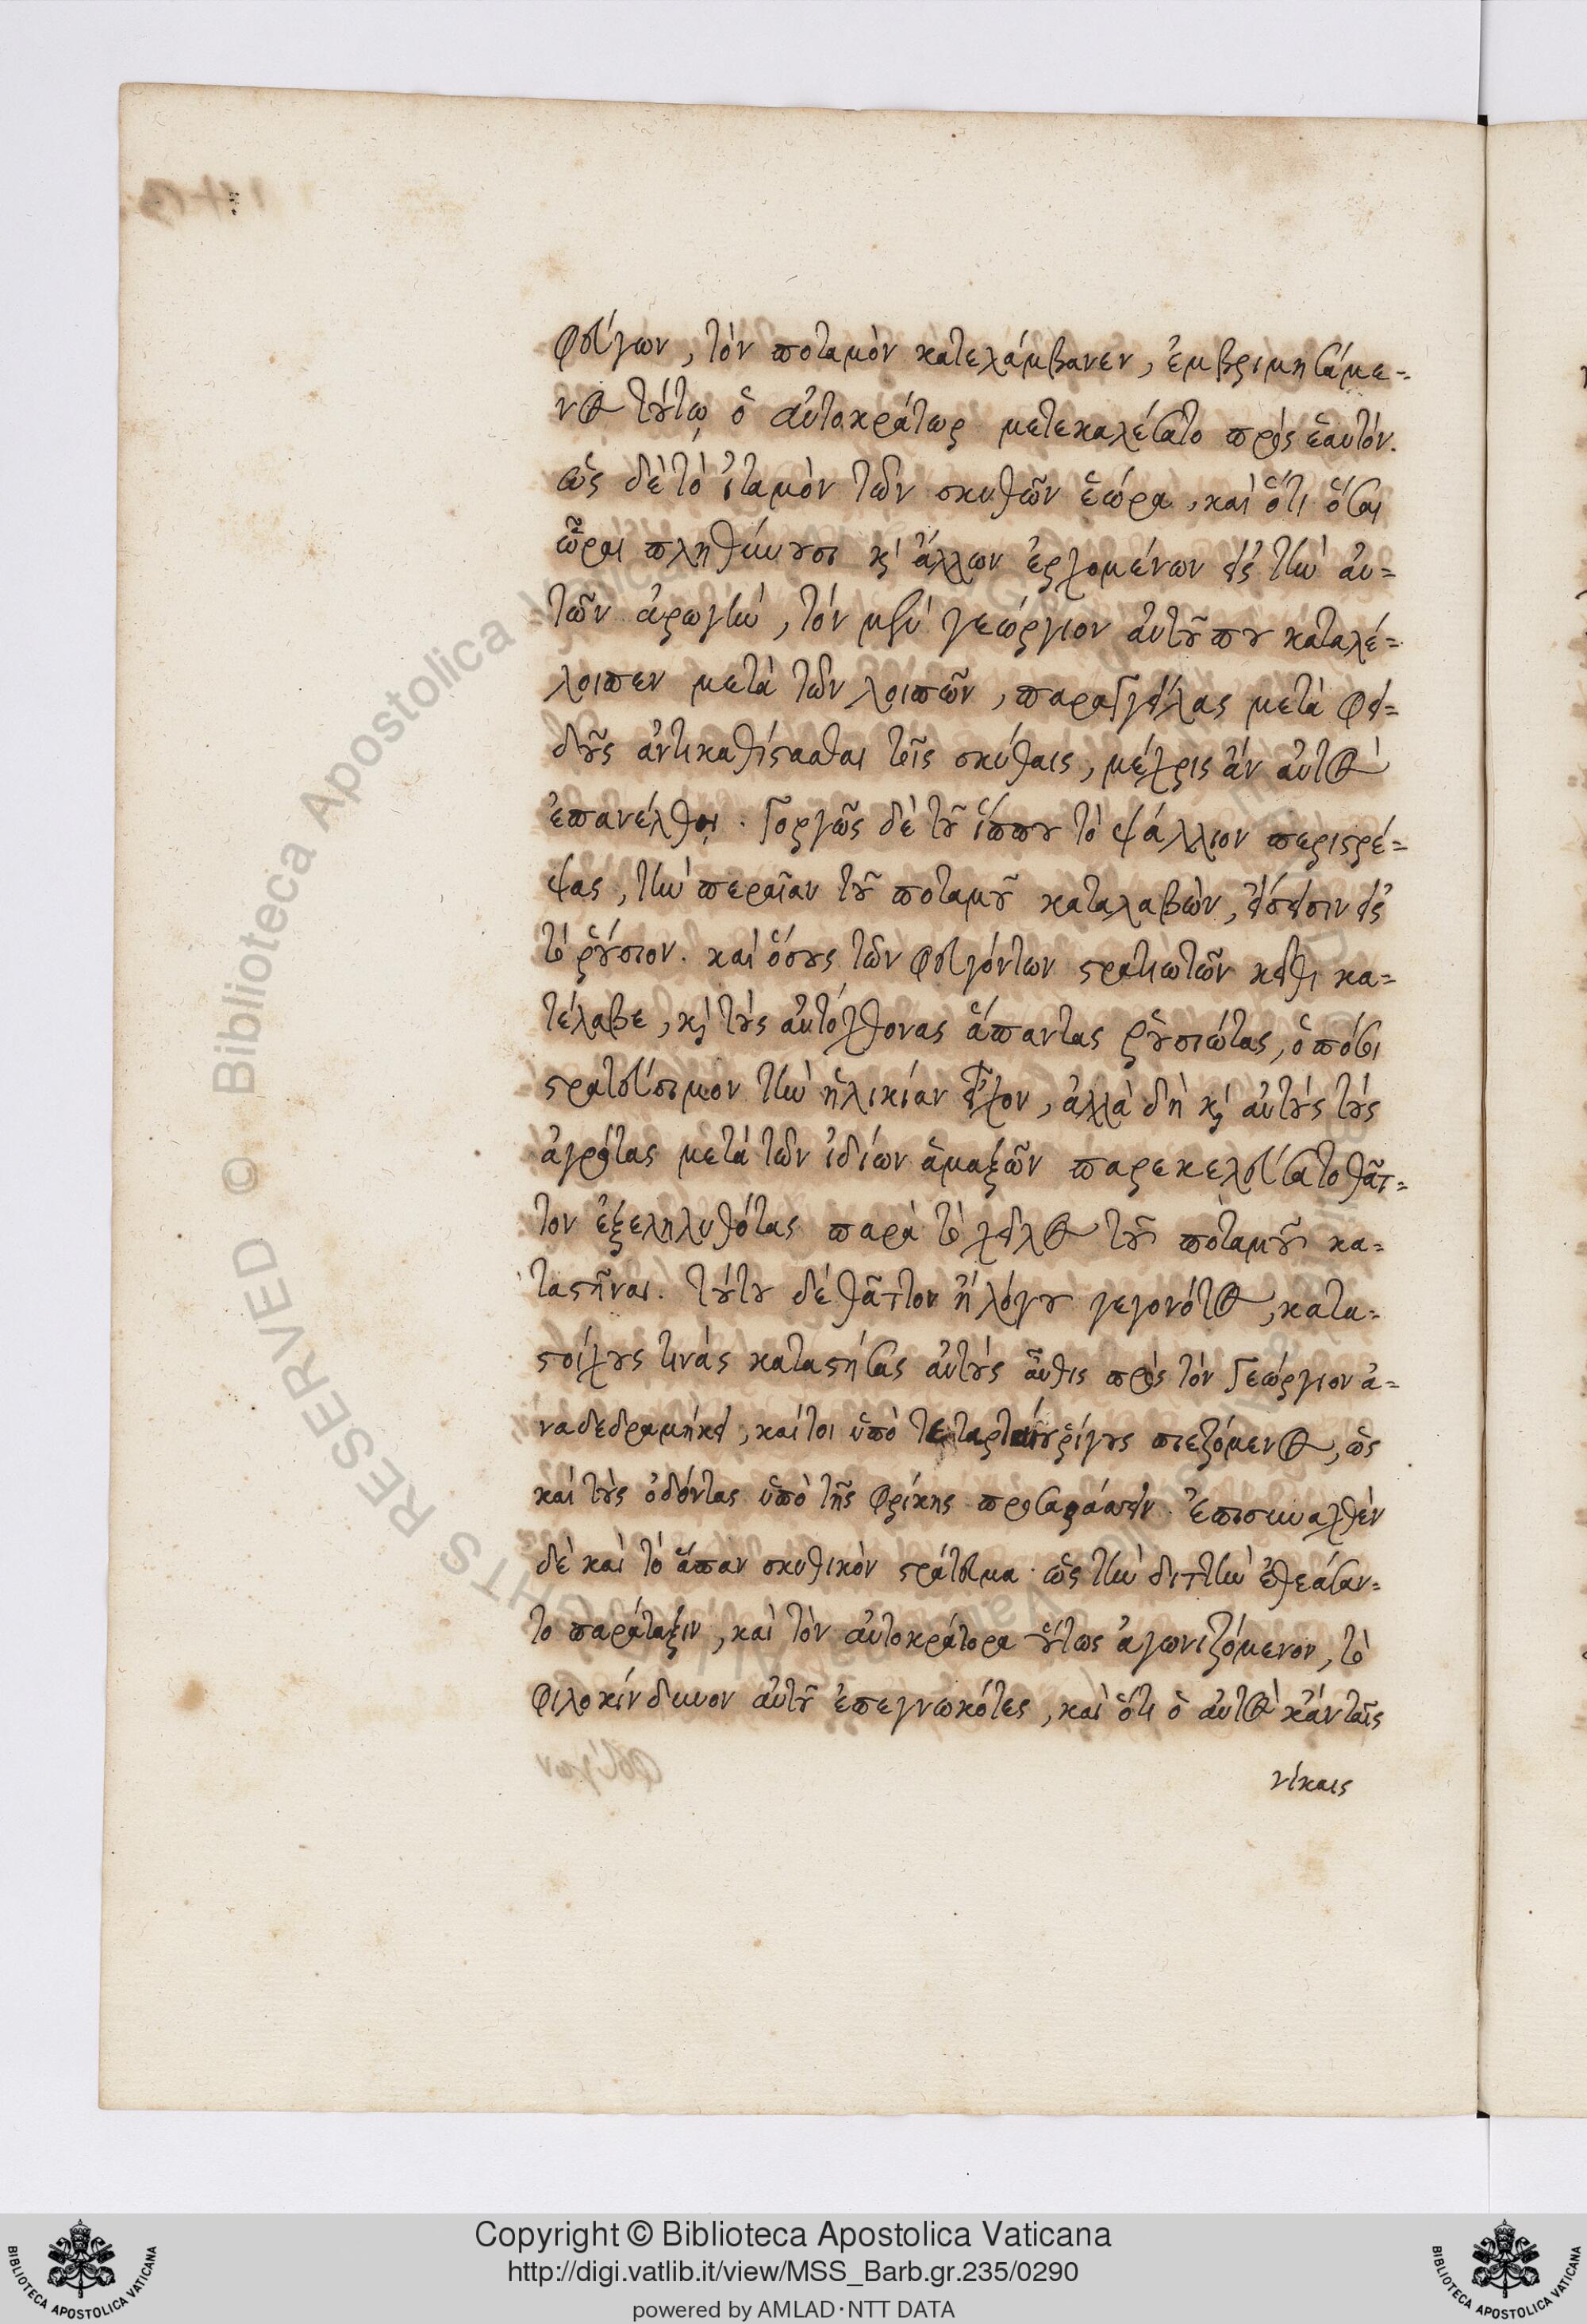 φεύγων, τὸν ποταμὸν κατελάμβανεν, ἐμβριμησάμε=
νος τούτῳ ὁ αὐτοκράτωρ μετεκαλέσατο πρὸς ἑαυτόν.
ὡς δὲ τὸ ἰταμὸν τῶν σκυθῶν ἑώρα, καὶ ὅτι ὅσαι
ὧραι πληθύνουσι κ' ἄλλων ἐρχομένων εἰς τὴν αὐ=
τῶν ἀρωγὴν, τὸν μὲν γεώργιον αὐτοῦ που καταλέ=
λοιπεν μετὰ τῶν λοιπῶν, παραγγείλας μετὰ φει=
δοῦς ἀντικαθίστασθαι τοῖς σκύθαις, μέχρις ἂν αὐτὸς
ἐπανέλθοι. Γοργῶς δὲ τοῦ ἵππου τὸ ψάλλιον περιστρέ=
ψας, τὴν περαῖαν τοῦ ποταμοῦ καταλαβὼν, εἴσεισιν εἰς
τὸ ῥούσιον. καὶ ὅσους τῶν φευγόντων στρατιωτῶν κεῖθι κα=
τέλαβε, κ' τοὺς αὐτόχθονας ἅπαντας ῥουσιώτας, ὁπόσοι
στρατεύσιμον τὴν ἡλικίαν εἶχον, ἀλλὰ δὴ κ' αὐτοὺς τοὺς
ἀγρότας μετὰ τῶν ἰδίων ἁμαξῶν παρεκελεύσατο θᾶτ=
τον ἐξεληλυθότας παρὰ τὸ χεῖλος τοῦ ποταμοῦ κα=
ταστῆναι. τούτου δὲ θᾶττον ἢ λόγου γεγονότος, κατα=
στοίχους τινὰς καταστήσας αὐτοὺς αὖθις πρὸς τὸν Γεώργιον ἀ=
ναδεδραμήκει, καίτοι ὑπὸ τεταρταίου ῥίγους πιεζόμενος, ὡς
καὶ τοὺς ὀδόντας ὑπὸ τῆς φρίκης προσαράσσειν. Ἐπισυναχθὲν
δὲ καὶ τὸ ἅπαν σκυθικὸν στράτευμα. ὡς τὴν διττὴν ἐθεάσαν=
το παράταξιν, καὶ τὸν αὐτοκράτορα οὕτως ἀγωνιζόμενον, τὸ
φιλοκίνδυνον αὐτοῦ ἐπεγνωκότες, καὶ ὅτι ὁ αὐτὸς κἂν ταῖς
νίκαις
Copyright © Biblioteca Apostolica Vaticana
http://digi.vatlib.it/view/MSS_Barb.gr.235/0290
powered by AMLAD·NTT DATA